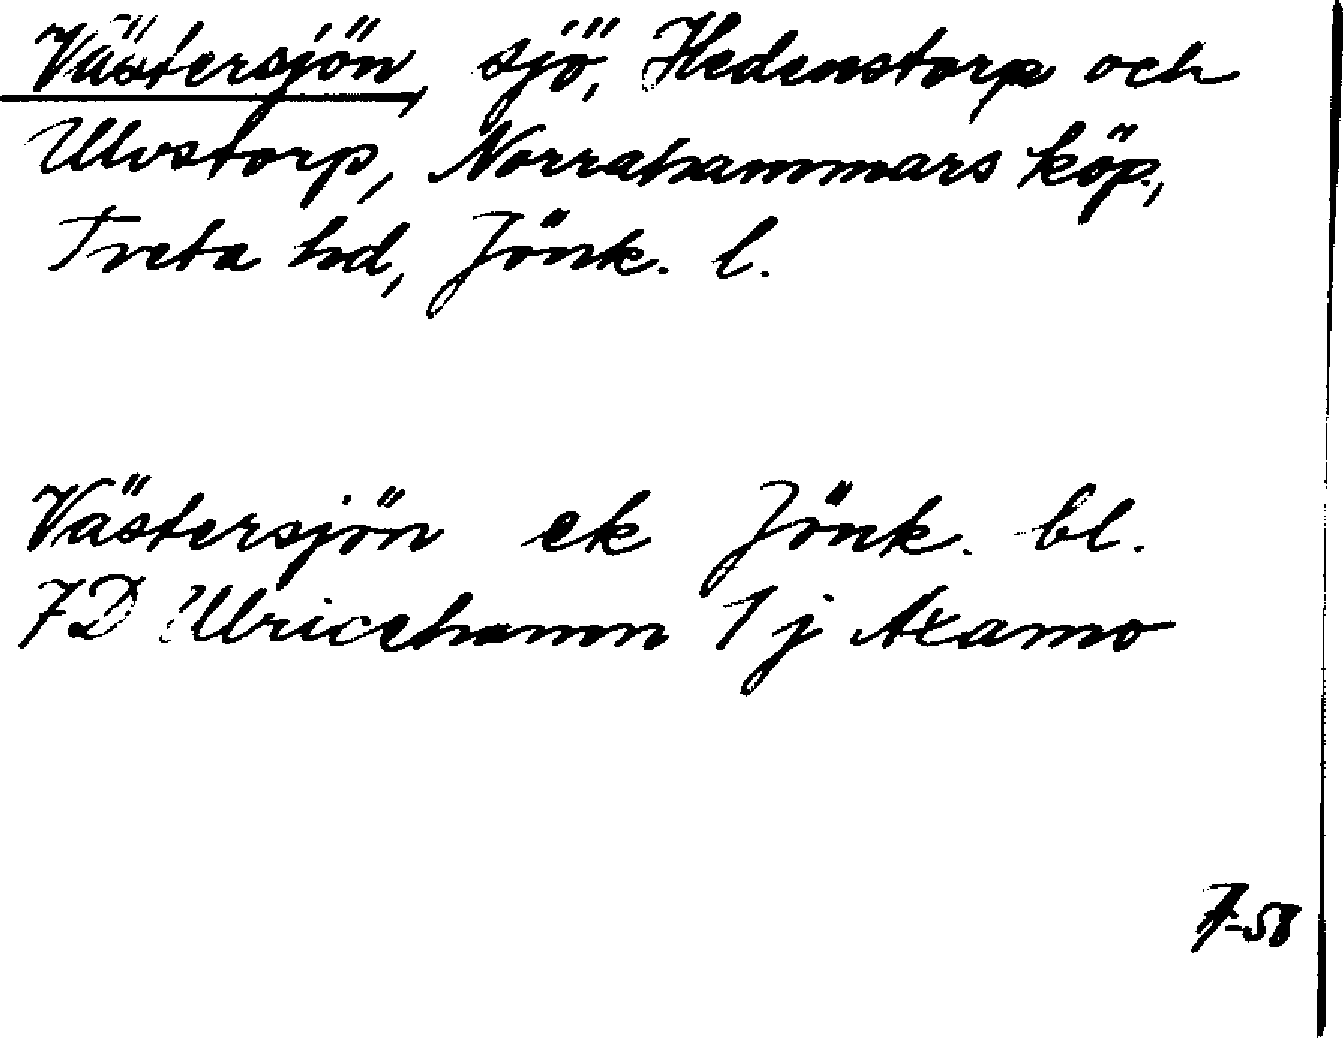 Västersjön, sjö, Hedenstorp och
Ulvstorp, Norrahammars köp.,
Tveta hd, Jönk. l.
Västersjön ek Jönk. bl.
7D Ulricehamn 1j Axamo
7-58